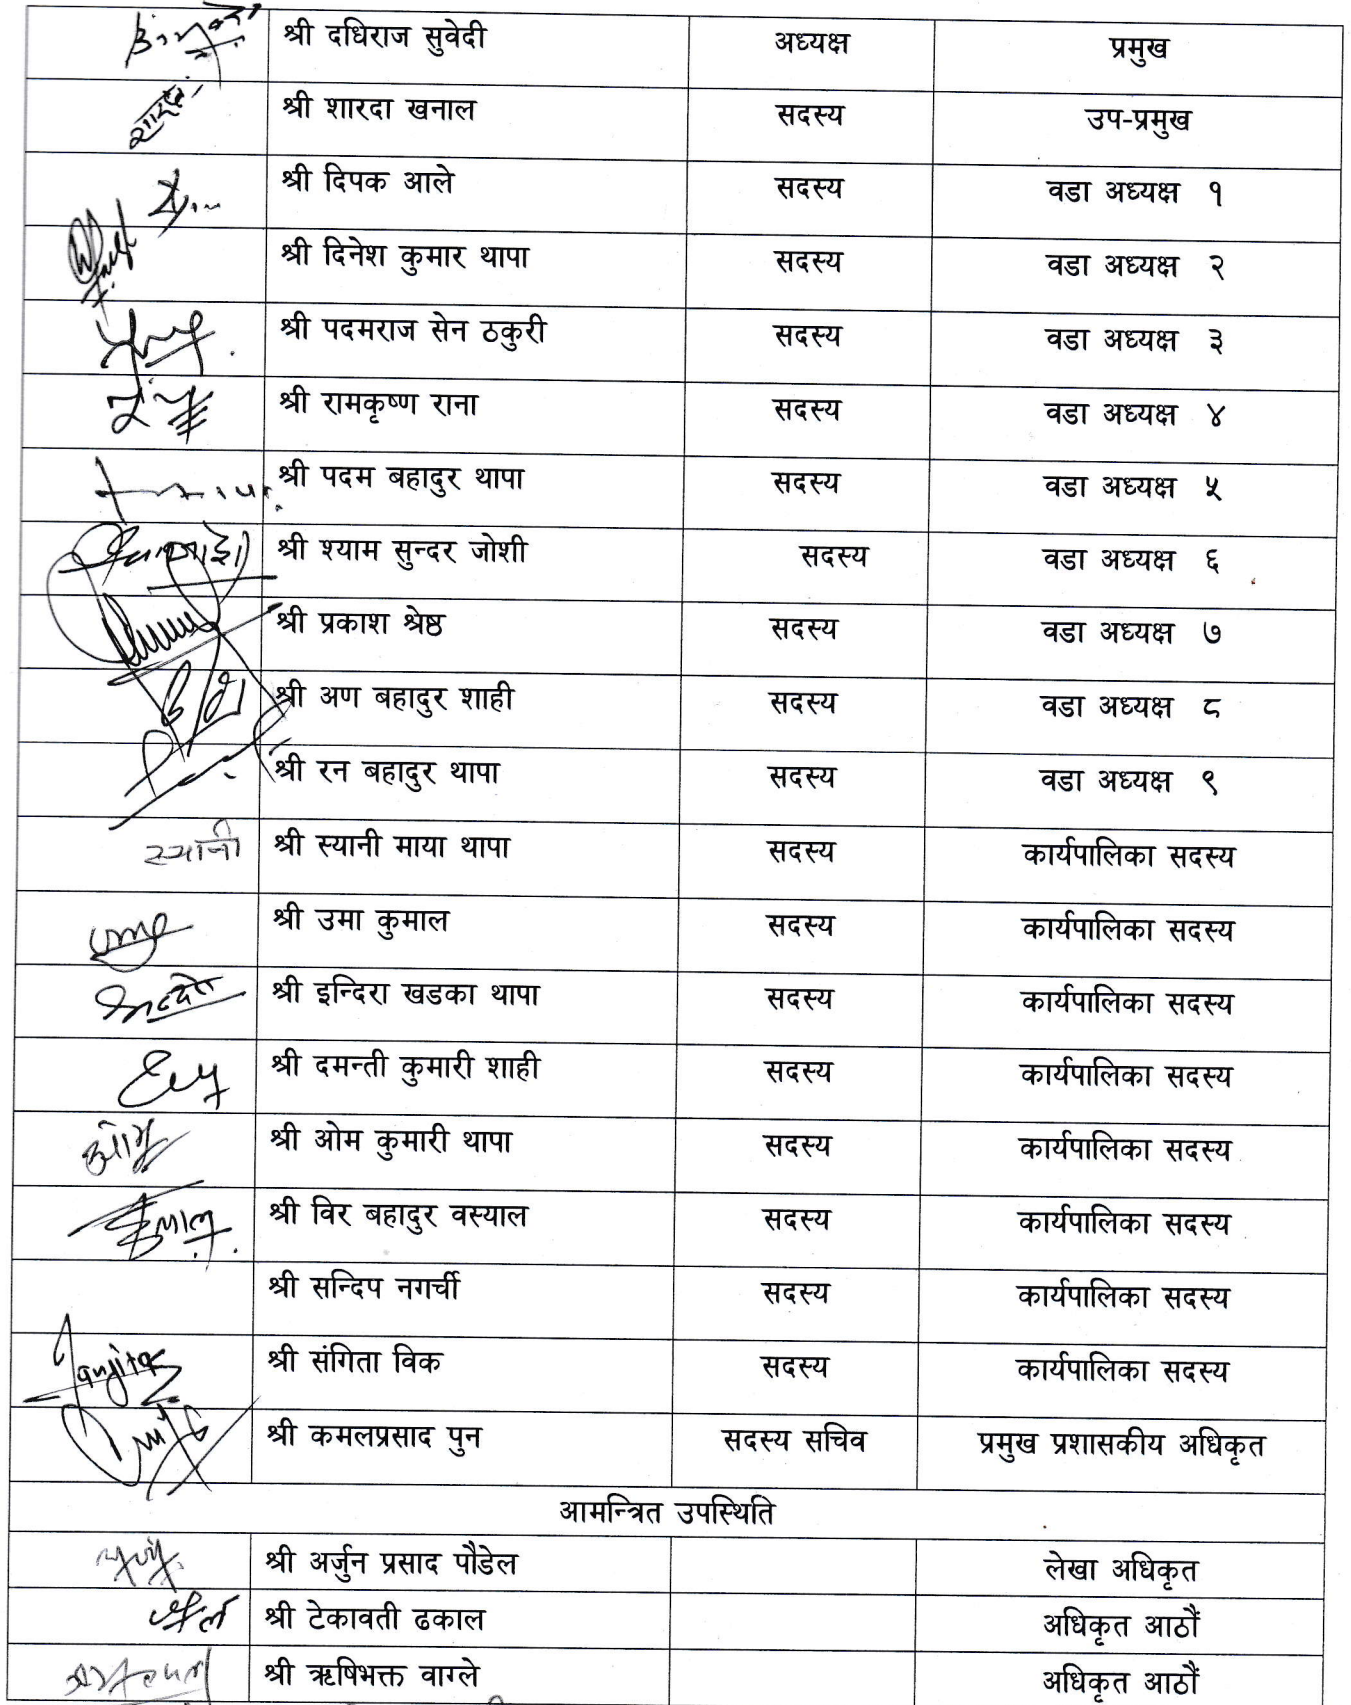 श्री दधिराज सुवेदी अध्यक्ष प्रमुख
श्री शारदा खनाल सदस्य उप-प्रमुख
श्री दिपक आले सदस्य वडा अध्यक्ष १
श्री दिनेश कुमार थापा सदस्य वडा अध्यक्ष २
श्री पदमराज सेन ठकुरी सदस्य वडा अध्यक्ष ३
श्री रामकृष्ण राना सदस्य वडा अध्यक्ष ४
श्री पदम बहादुर थापा सदस्य वडा अध्यक्ष ५
श्री श्याम सुन्दर जोशी सदस्य वडा अध्यक्ष ६
श्री प्रकाश श्रेष्ठ सदस्य वडा अध्यक्ष ७
श्री अण बहादुर शाही सदस्य वडा अध्यक्ष ८
श्री रन बहादुर थापा सदस्य वडा अध्यक्ष ९
स्यानी श्री स्यानी माया थापा सदस्य कार्यपालिका सदस्य
श्री उमा कुमाल सदस्य कार्यपालिका सदस्य
श्री इन्दिरा खडका थापा सदस्य कार्यपालिका सदस्य
श्री दमन्ती कुमारी शाही सदस्य कार्यपालिका सदस्य
श्री ओम कुमारी थापा सदस्य कार्यपालिका सदस्य
श्री विर बहादुर वस्याल सदस्य कार्यपालिका सदस्य
श्री सन्दिप नगर्ची सदस्य कार्यपालिका सदस्य
श्री संगिता विक सदस्य कार्यपालिका सदस्य
श्री कमलप्रसाद पुन सदस्य सचिव प्रमुख प्रशासकीय अधिकृत
आमन्त्रित उपस्थिति
श्री अर्जुन प्रसाद पौडेल लेखा अधिकृत
श्री टेकावती ढकाल अधिकृत आठौं
श्री ऋषिभक्त वाग्ले अधिकृत आठौं